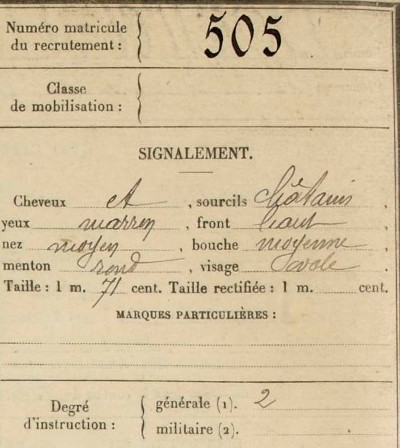 Numéro matricule
du recrutement : 505
Classe
de mobilisation :
SIGNALEMENT.
Cheveux et , sourcils châtains ,
yeux marron , front haut ,
nez moyen , bouche moyenne ,
menton rond , visage ovale .
Taille : 1 m. 71 cent. Taille rectifiée : 1 m. cent.
MARQUES PARTICULIÈRES :
Degré
d'instruction :
générale (1). 2
militaire (2).